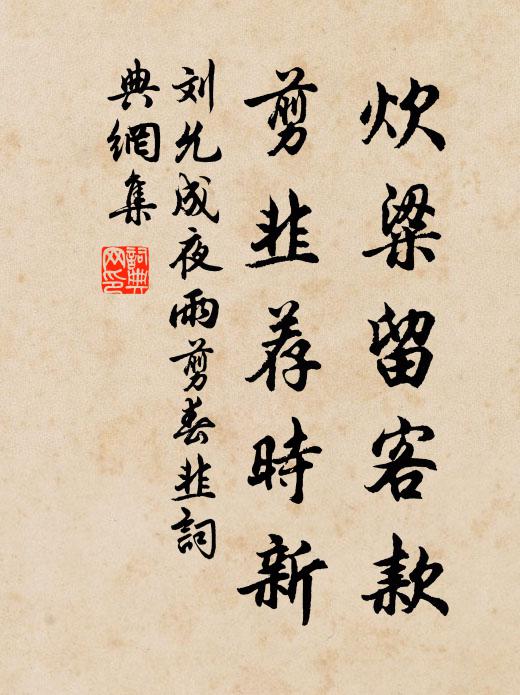 炊梁留客款
剪韭荐時新
刘允成夜雨剪春韭詞
典網集
詞典
网印